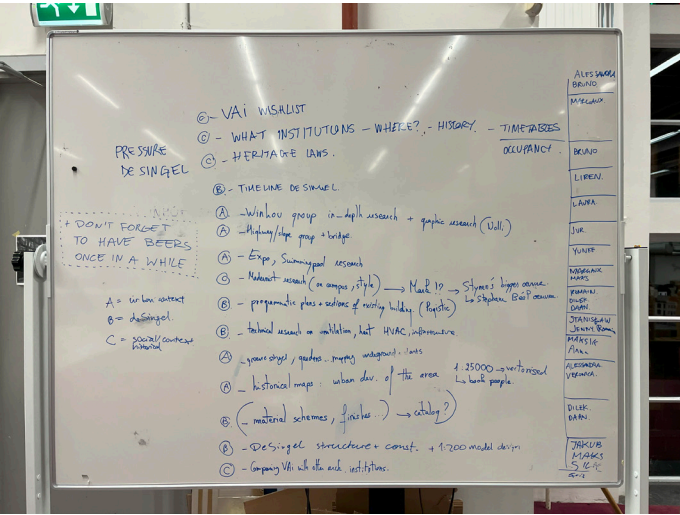 C - VAi WISHLIST
C - WHAT INSTITUTIONS - WHERE? - HISTORY. - TIMETABLES
OCCUPANCY.
C - HERITAGE LAWS.
PRESSURE
DE SINGEL
B - TIMELINE DE SINGEL.
A - Winhou group in-depth research + graphic research
A - Highway/slope group + bridge
A - Expo, Swimmingpool research
C - research (on campus, style) → →
B - programmatic plans + sections of existing building.
B - technical research on ventilation, heat HVAC, infrastructure
A - mapping underground
A - historical maps: urban dev. of the area 1:25000 → vectorised
↳ book people.
B (material schemes, finishes...) → catalog?
B - DeSingel structure + const. + 1:200 model design
C - Comparing VAi with other arch. institutions.
+ DON'T FORGET
TO HAVE BEERS
ONCE IN A WHILE
A = urban context
B = deSingel.
C = social/context
historical
ALESSANDRA
BRUNO
MARGAUX.
BRUNO
LIREN.
LAURA.
JUR.
YUNFF
MARGAUX
MAKS.
ROMAIN.
DILEK.
DAAN.
STANISŁAW
JENNY
MAKSIM
ALESSANDRA
VERONICA.
DILEK.
DAAN.
JAKUB
MAKS